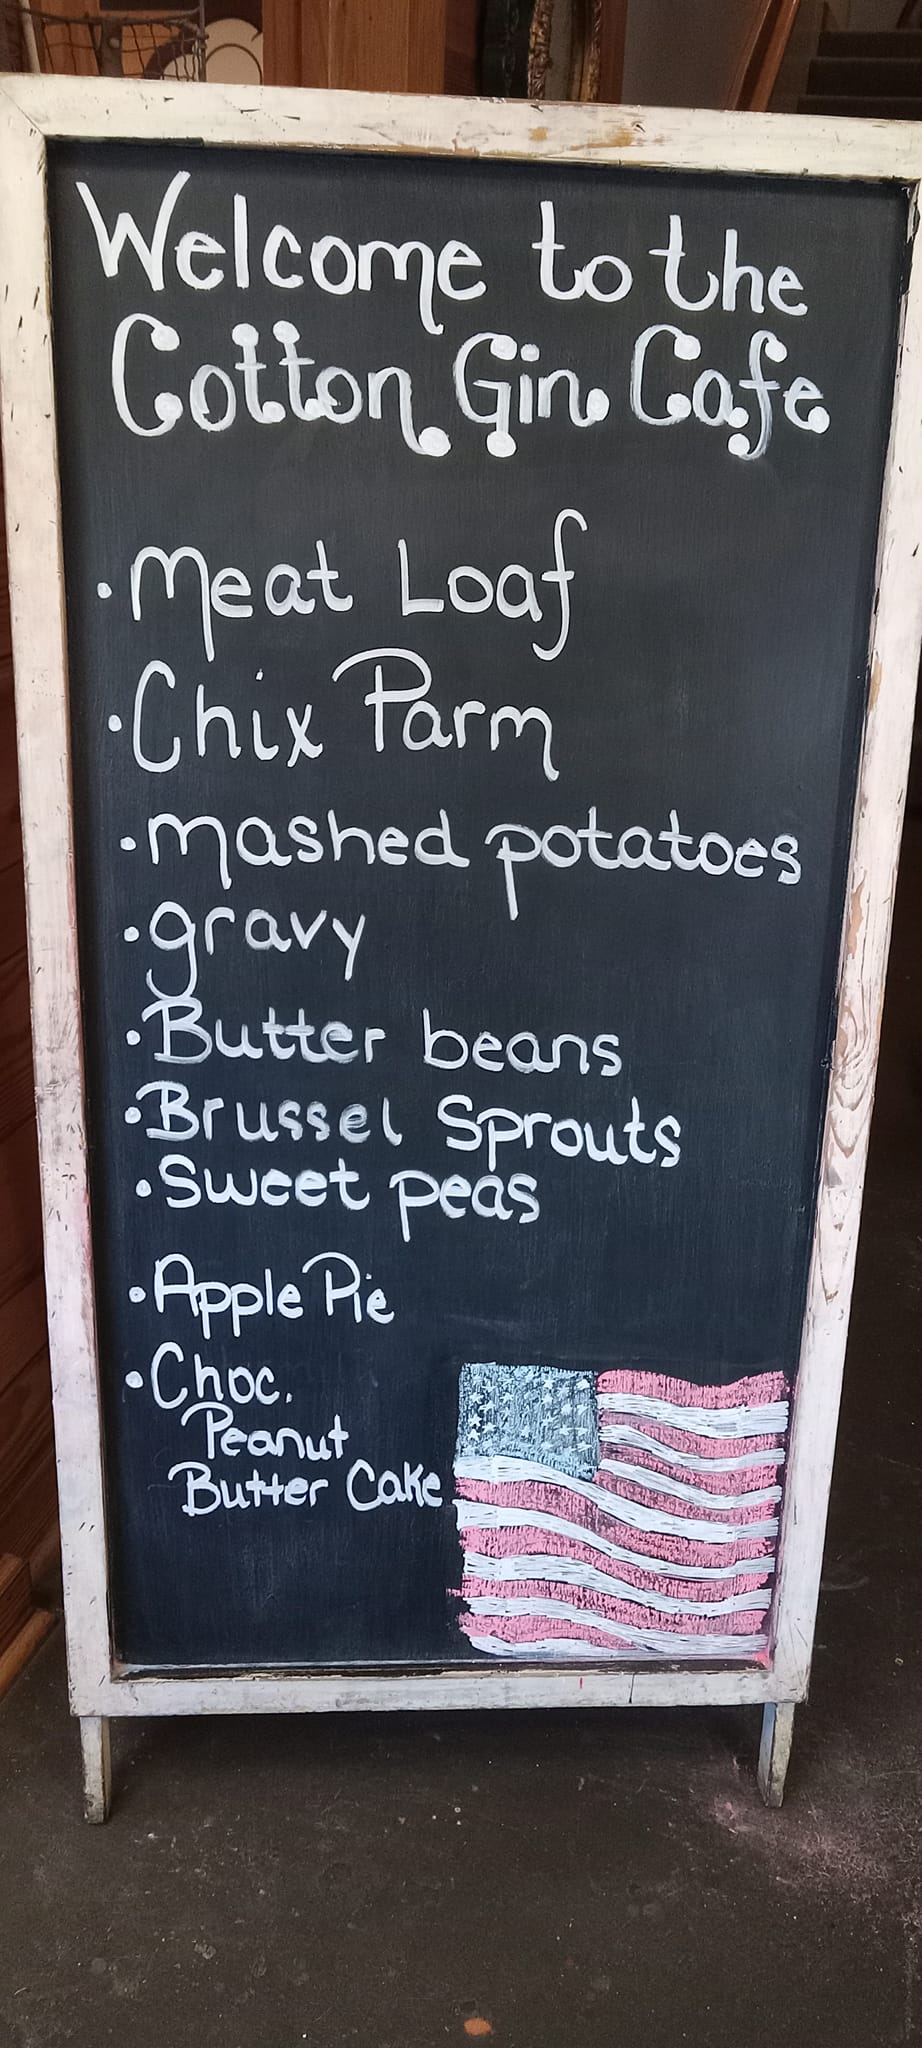 Welcome to the
Cotton Gin Cafe
• Meat Loaf
• Chix Parm
• mashed potatoes
• gravy
• Butter beans
• Brussel Sprouts
• Sweet peas
• Apple Pie
• Choc.
Peanut
Butter Cake